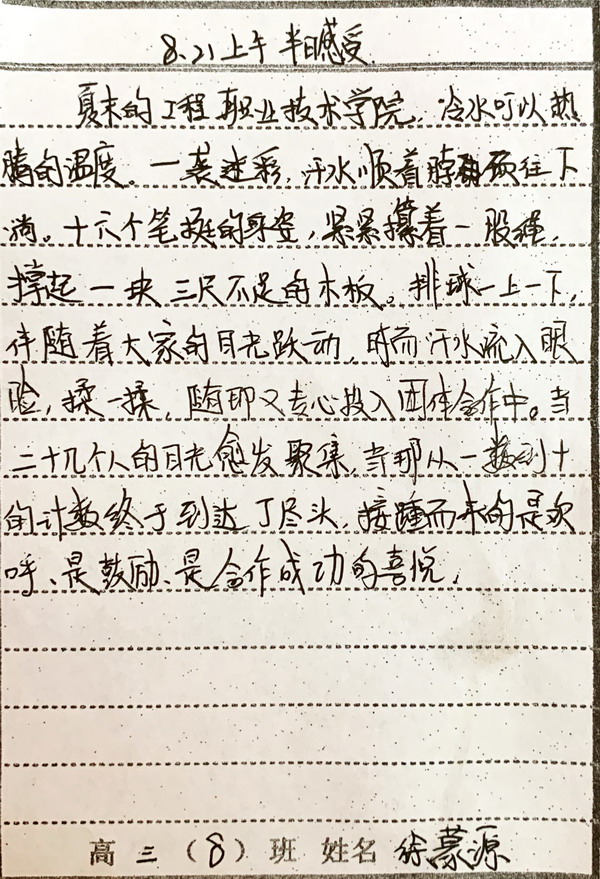 8.21上午 半日感受
夏末的工程职业技术学院，冷水可以热
腾的温度。一袭迷彩，汗水顺着脖颈往下
淌。十六个笔挺的身姿，紧紧攥着一股绳，
撑起一块三尺不足的木板。排球一上一下，
伴随着大家的目光跃动，时而汗水流入眼
睑，揉一揉，随即又专心投入团体合作中。当
二十几个人的目光愈发聚集，当那从一数到十
的计数终于到达了尽头，接踵而来的是欢
呼、是鼓励、是合作成功的喜悦。
高三（8）班 姓名 徐慕源